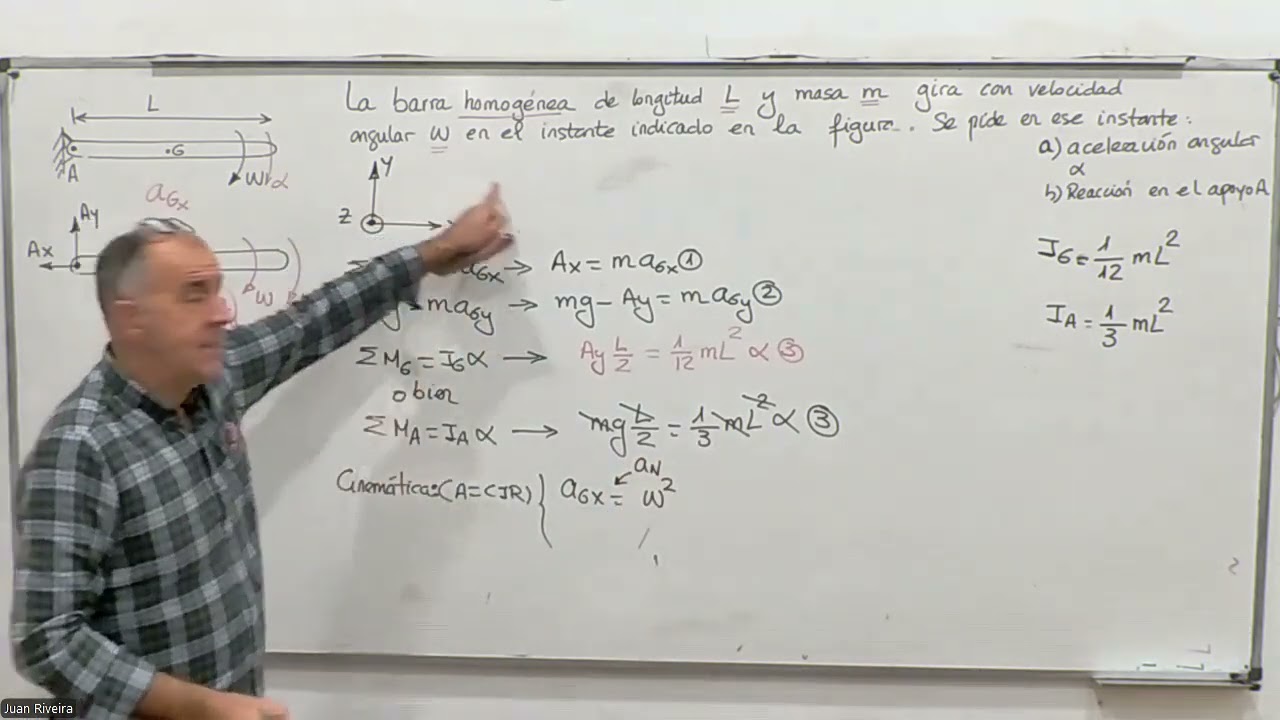 La barra homogénea de longitud L y masa m gira con velocidad
angular ω en el instante indicado en la figura. Se pide en ese instante:
a) aceleración angular
α
b) Reacción en el apoyo A
L
G
A
ω α
a_Gx
Ay
Ax
ω
Y
Z
a_Gx → Ax = m a_Gx ①
m a_Gy → mg - Ay = m a_Gy ②
Σ M_G = I_G α → Ay L/2 = 1/12 mL² α ③
o bien
Σ M_A = I_A α → mg L/2 = 1/3 mL² α ③
a_N
Cinemática: (A=CIR) { a_Gx = ω²
I_G = 1/12 mL²
I_A = 1/3 mL²
Juan Riveira